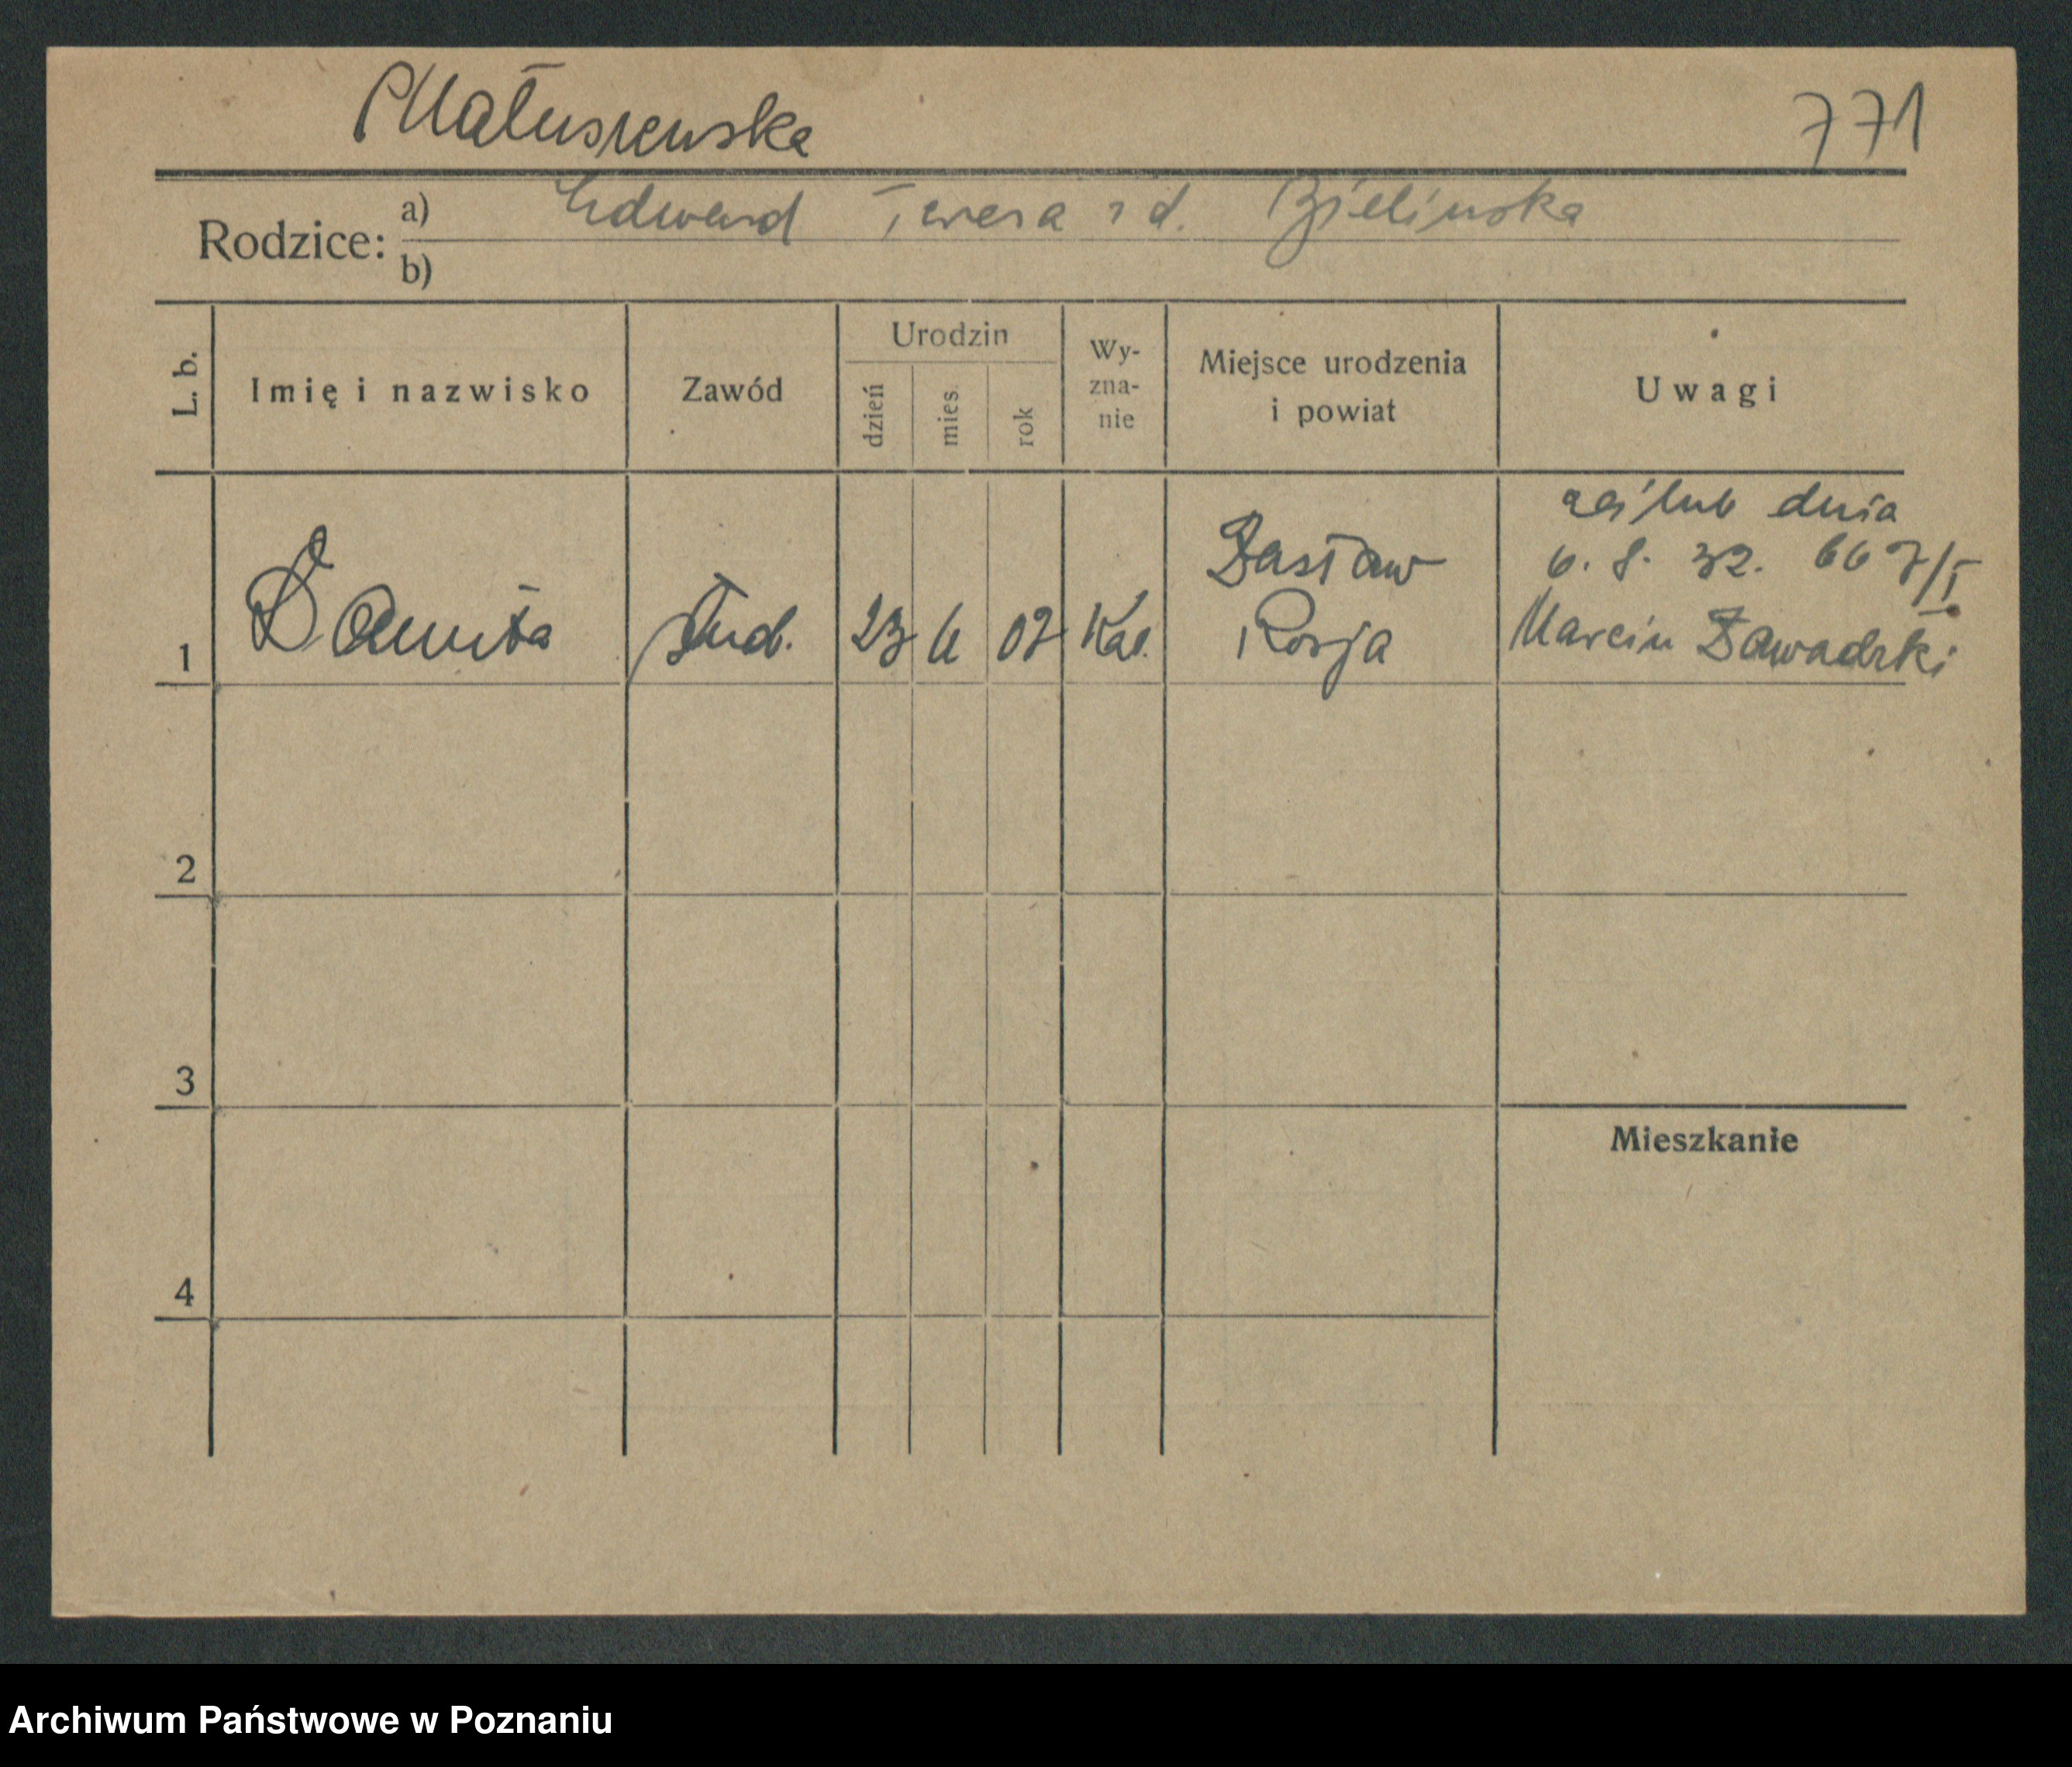 Matuszewska
771
Rodzice:
a) Edward Teresa zd. Bielinska
b)
L. b.
Imię i nazwisko
Zawód
Urodzin
dzień
mies.
rok
Wy-
zna-
nie
Miejsce urodzenia
i powiat
Uwagi
1
Danuta
stud.
23
6
02
Kat.
Zasław
Rosja
zaślub dnia
6. 8. 32. 667/I
Marcin Zawadzki
2
3
4
Mieszkanie
Archiwum Państwowe w Poznaniu